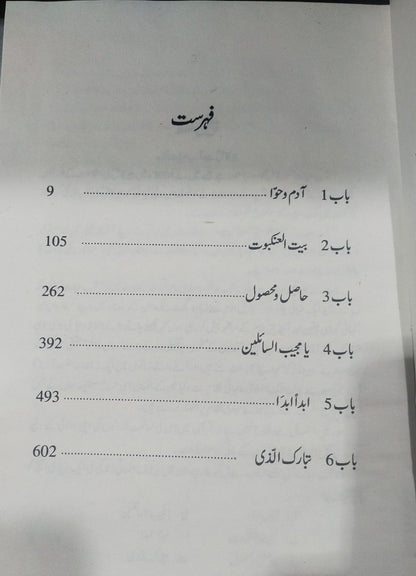 فہرست
باب 1 آدم و حوّا ........................ 9
باب 2 بیت العنکبوت ........................ 105
باب 3 حاصل و محصول ........................ 262
باب 4 یا مجیب السائلین ........................ 392
باب 5 ابداً ابدا ........................ 493
باب 6 تبارک الّذی ........................ 602